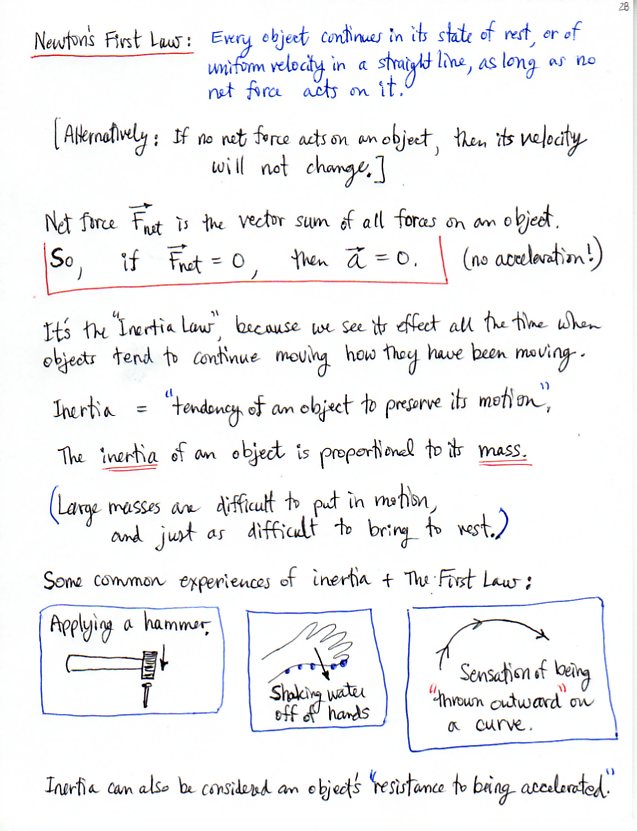 28
Newton's First Law: Every object continues in its state of rest, or of
uniform velocity in a straight line, as long as no
net force acts on it.
[Alternatively: If no net force acts on an object, then its velocity
will not change.]
Net force F⃗net is the vector sum of all forces on an object.
So, if F⃗net = 0, then a⃗ = 0. (no acceleration!)
It's the "Inertia Law", because we see its effect all the time when
objects tend to continue moving how they have been moving.
Inertia = "tendency of an object to preserve its motion",
The inertia of an object is proportional to its mass.
(Large masses are difficult to put in motion,
and just as difficult to bring to rest.)
Some common experiences of inertia + The First Law:
Applying a hammer.
Shaking water
off of hands
Sensation of being
"thrown outward" on
a curve.
Inertia can also be considered an object's "resistance to being accelerated."